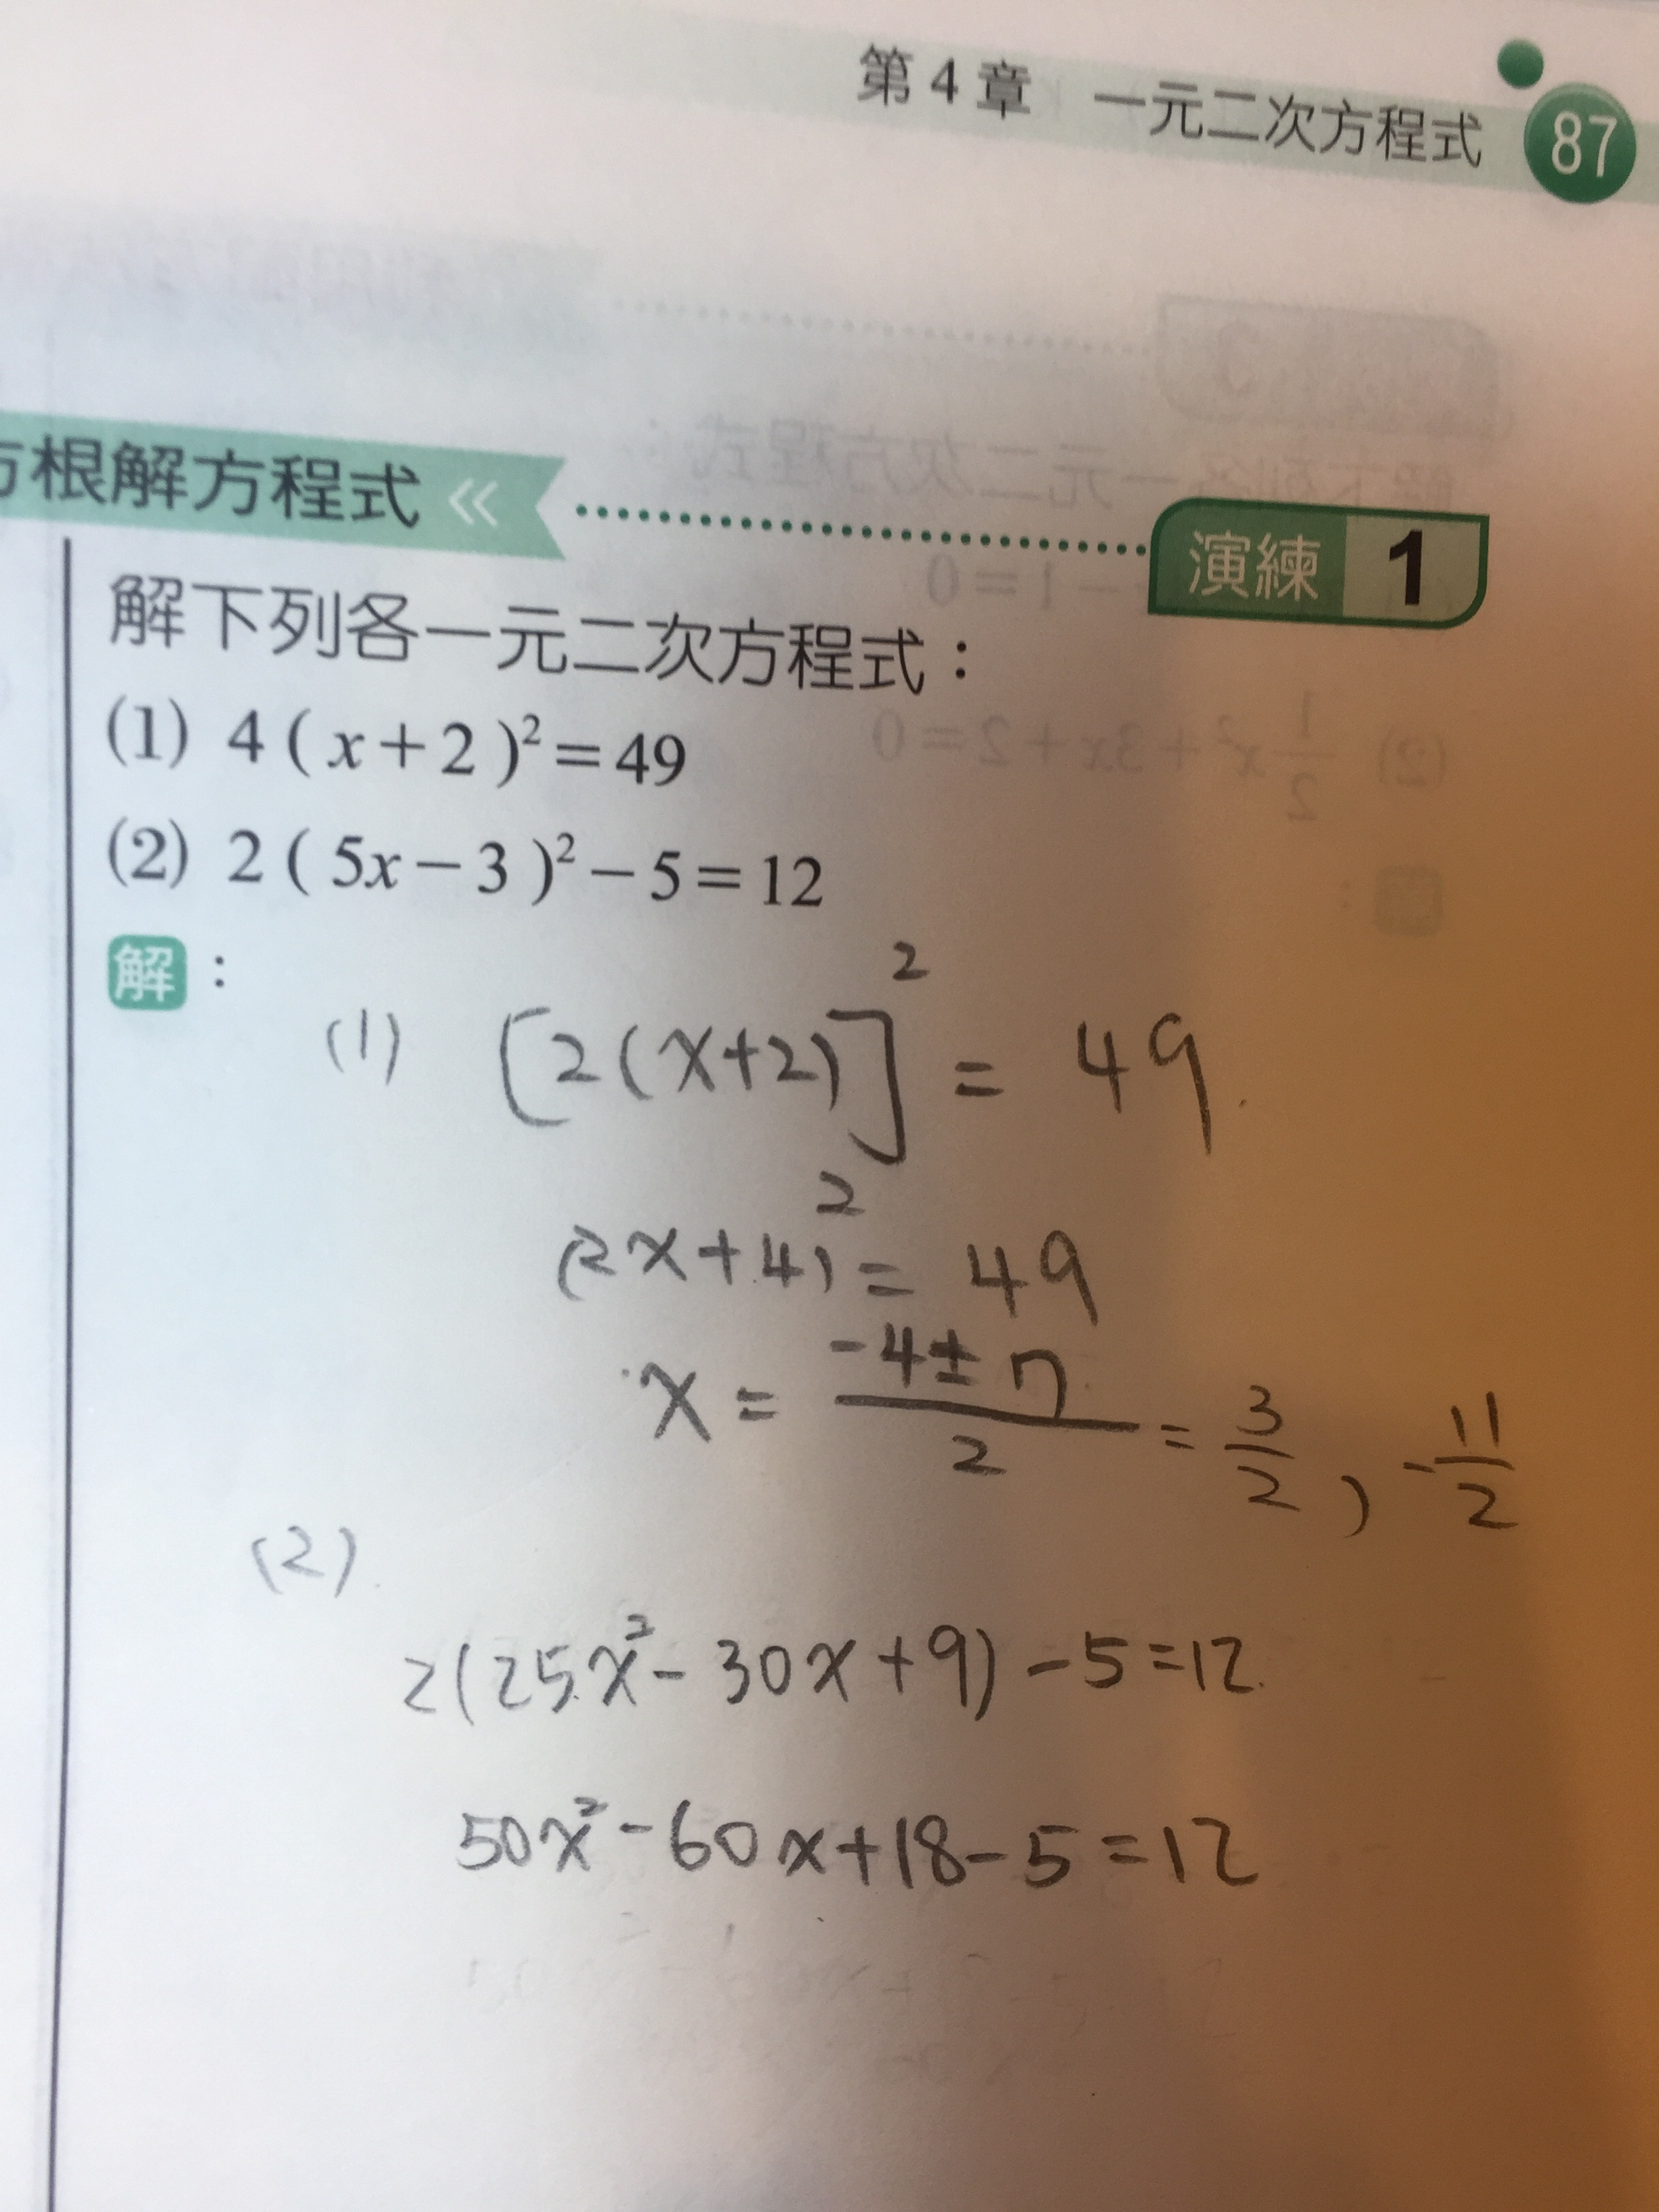 第4章 一元二次方程式 87
根解方程式 «
演練 1
解下列各一元二次方程式：
(1) 4(x+2)²=49
(2) 2(5x−3)²−5=12
解：
(1) [2(x+2)]² = 49
(2x+4)² = 49
x = (-4±7)/2 = 3/2, -11/2
(2)
2(25x²-30x+9)-5=12
50x²-60x+18-5=12